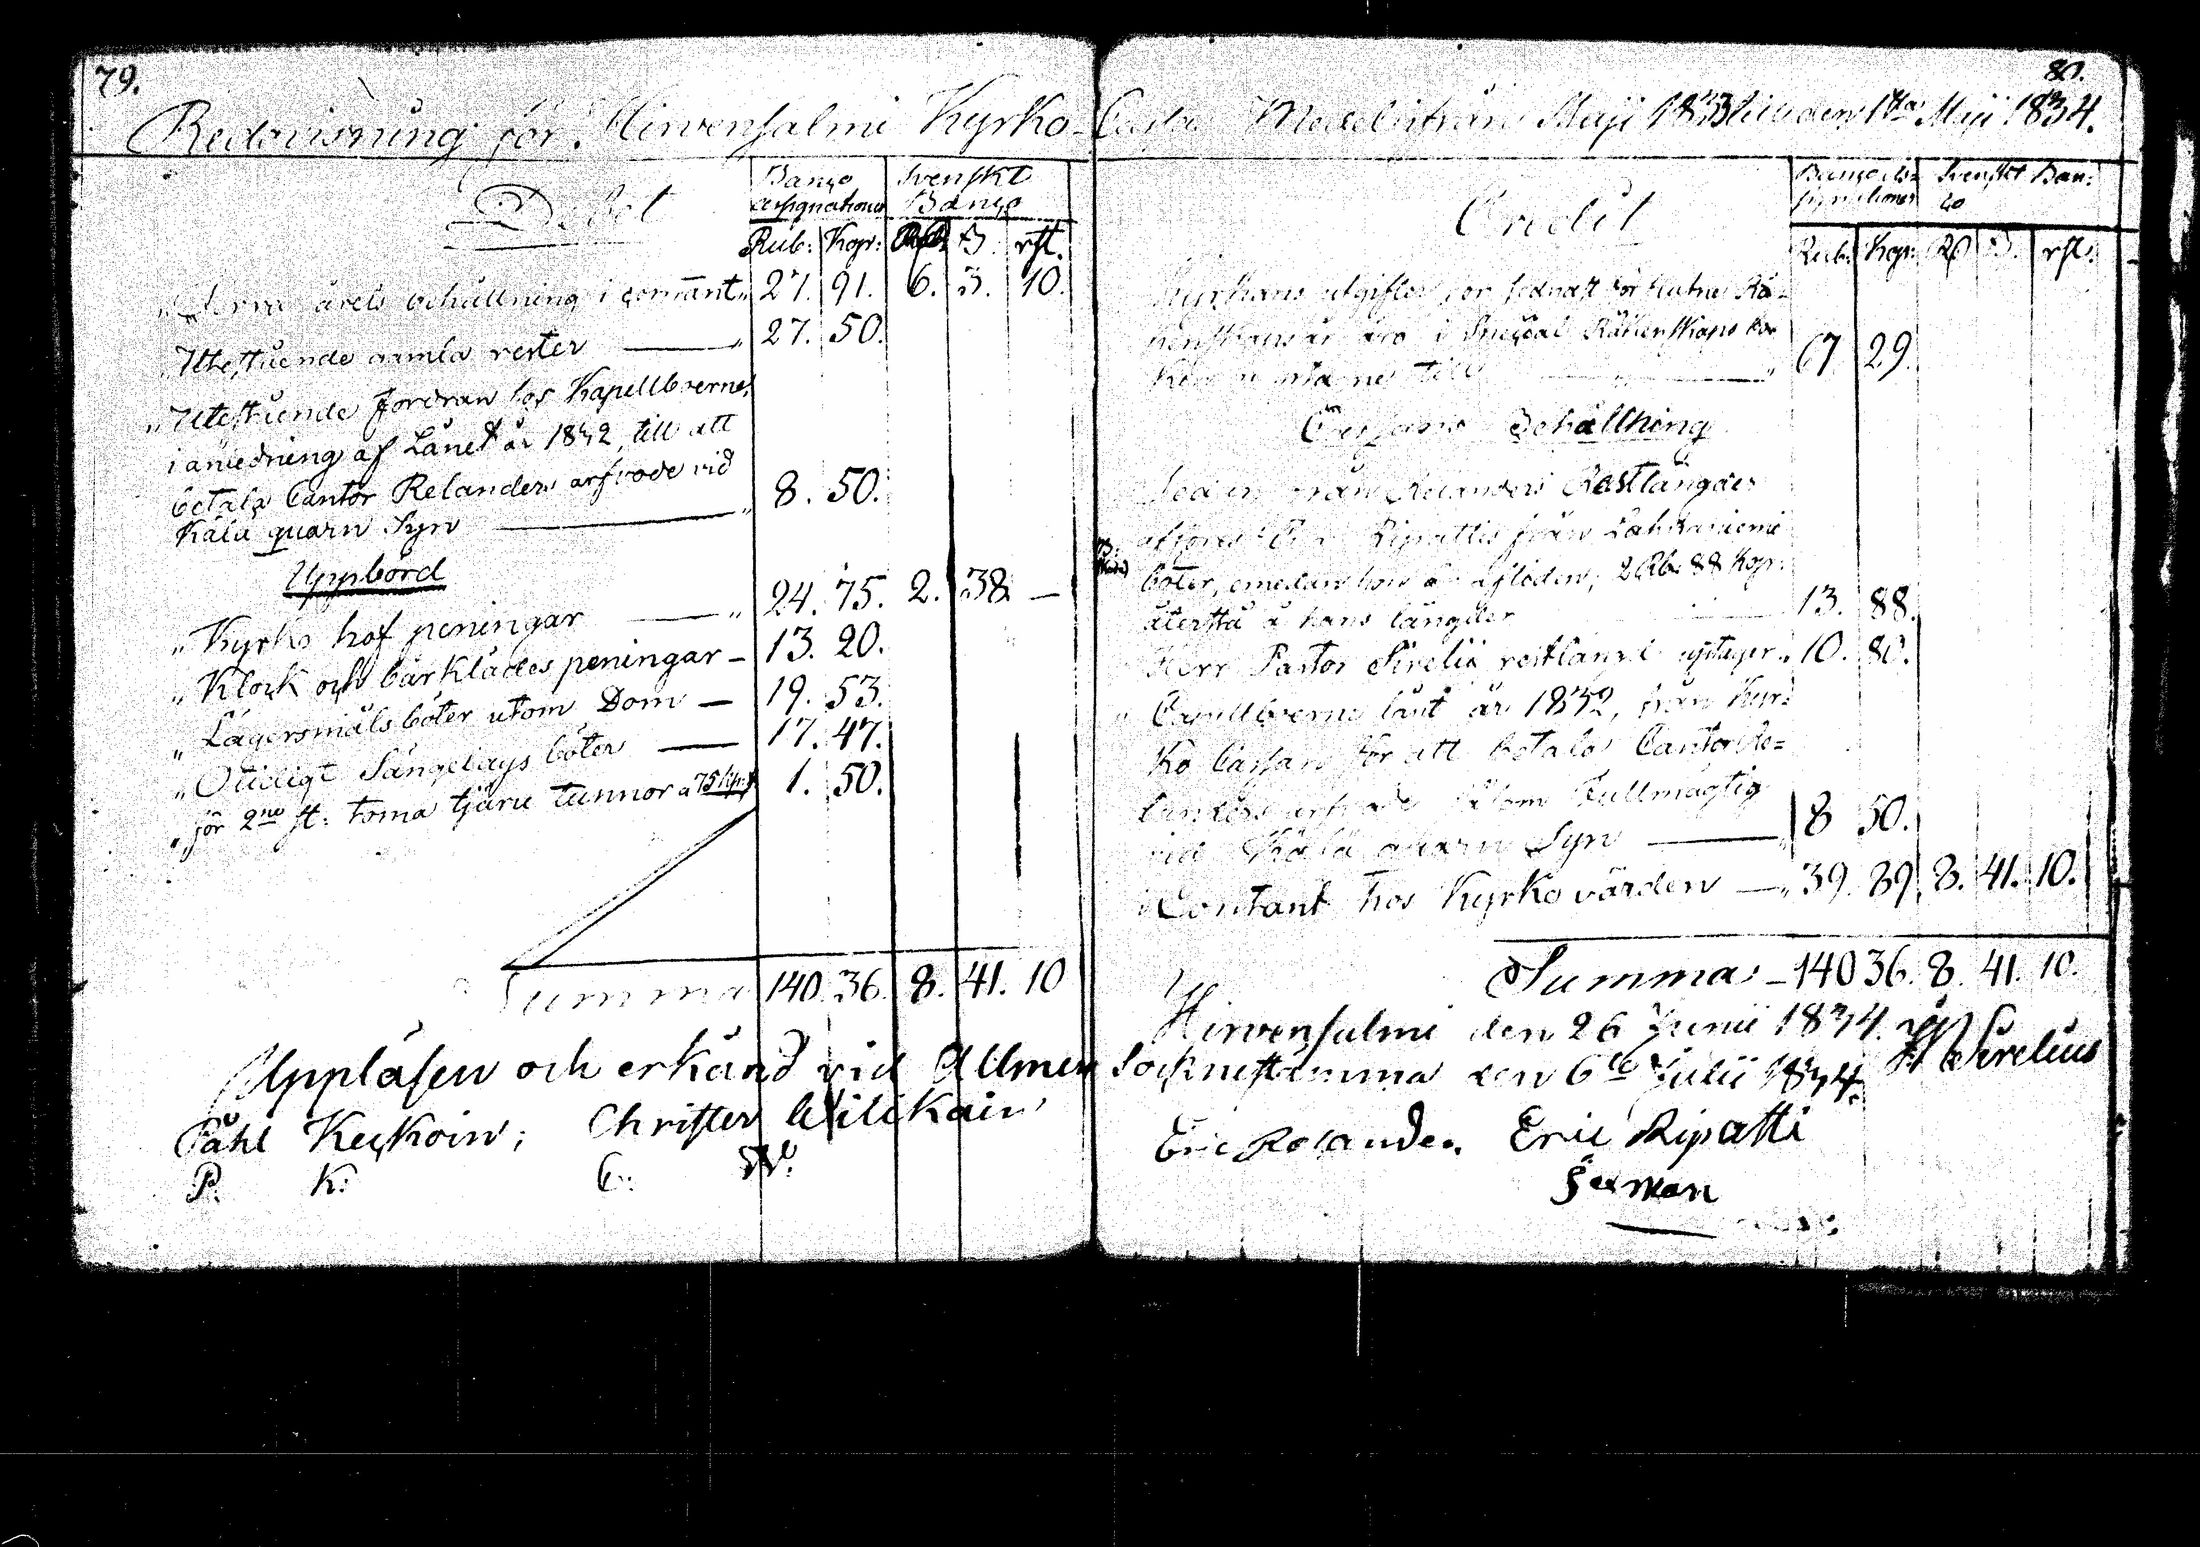 79.
Redovisning för Hirvensalmi Kyrko-
Debet
Banco Assignationer
Svenskt Banco
Rub: Kop: Rdr ß. rst.
" Förra årets behållning i contant " 27. 91. 6. 3. 10.
" Utestående gamla rester — " 27. 50.
" Utestående fordran hos Kapellboerne,
i anledning af Lånet år 1832, till att
betala Cantor Relanders arfvode vid
Kälä quarn Syn — " 8. 50.
Uppbörd
" Kyrko hof peningar — " 24. 75. 2. 38. —
" Klock och bårklädes peningar — 13. 20.
" Lägersmåls böter utom Dom — 19. 53.
" Otidigt Sängelags böter — 17. 47.
" för 2ne st: toma tjäru tunnor a 75 kop: 1. 50.
Summa 140. 36. 8. 41. 10
Uppläsen och erkänd vid Allmen
Påhl Keckoin; Christer Wilikain
P. K: C: W:
80.
Cassa Medel ifrån Maji 1833 till den 1sta Maji 1834.
Credit
Banco Assignationer
Svenskt Banco
Rub: Kop: Rd ß. rst:
Kyrkans utgifter för sednast förflutne Rä-
kenskapsår äro i Special Räkenskapen
till — " 67 29.
Cassans Behållning
Relanders Restlängder
afföres Ripattis från Lahnaniemi
böter, emedan hon är afliden, 2 Rb. 88 Kop:
återstå å hans längder 13. 88.
Herr Pastor Sirelii restlängd upptager " 10. 80.
" Capellboerne lånt år 1832, från Kyr-
ko Cassan för att betala Cantor Re-
landers arfvode såsom Fullmägtig
vid Kälä quarn Syn — 8 50.
i Contant hos Kyrkovärden — " 39. 89. 8. 41. 10.
Summa — 140 36. 8. 41. 10.
Hirvensalmi den 26 Junii 1834.
Socknestämma den 6te Julii 1834. Sirelius
Eric Relander. Eric Ripatti